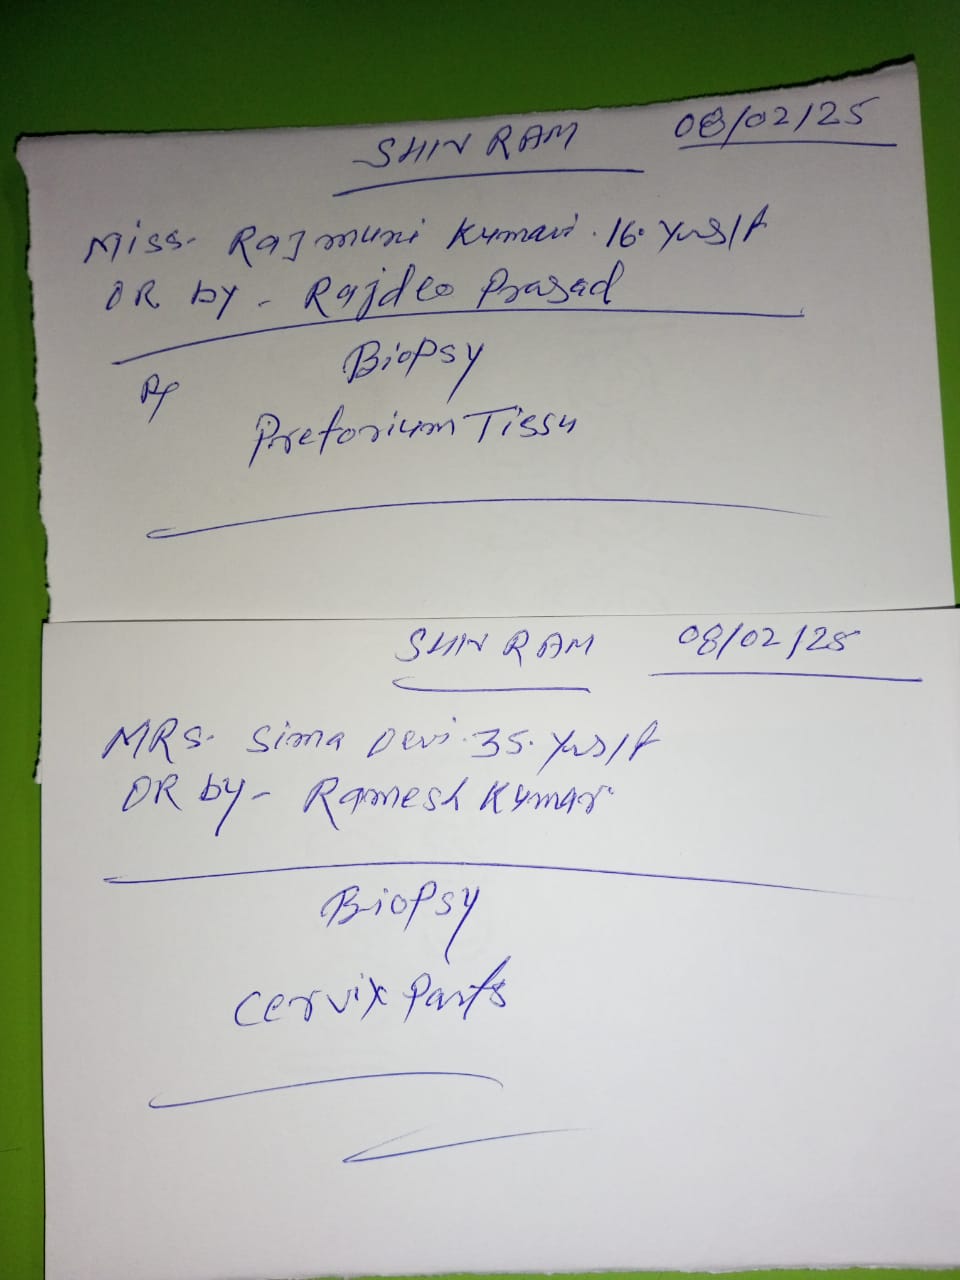 SHIV RAM 08/02/25
Miss- Rajmuni Kumari. 16. Yrs/f
DR by - Rajdeo Prasad
Biopsy
Rx
Pretorium Tissu
SHIV RAM 08/02/25
MRS. Sima Devi. 35. Yrs/f
DR by - Ramesh Kumar
Biopsy
Cervix Parts